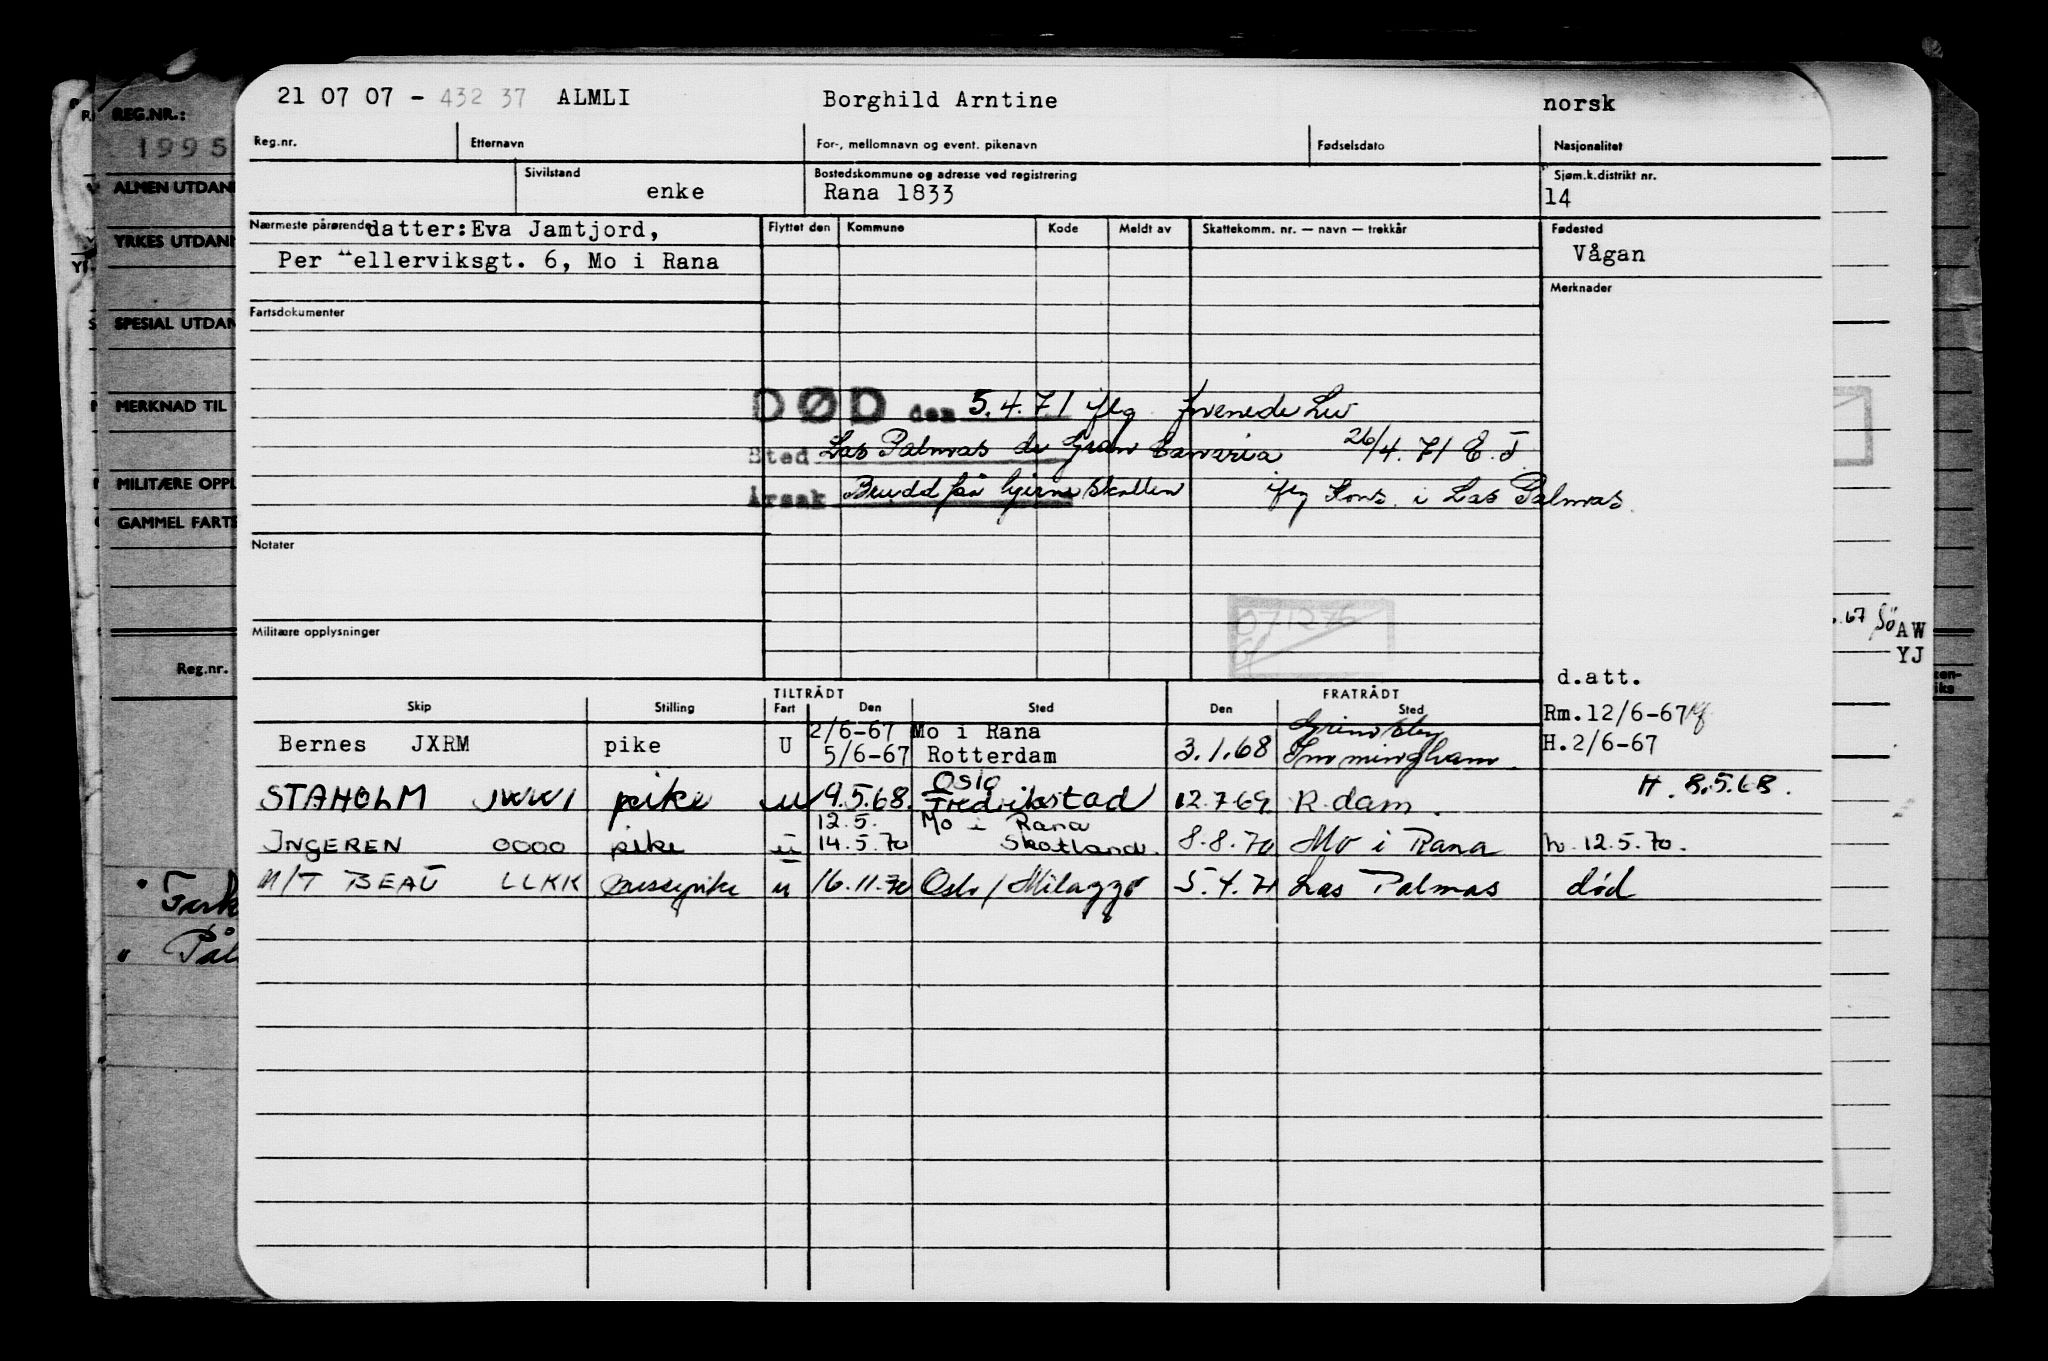 21 07 07 - 432 37 ALMLI Borghild Arntine norsk
Reg.nr. Etternavn For-, mellomnavn og event. pikenavn Fødselsdato Nasjonalitet
Sivilstand Bostedskommune og adresse ved registrering Sjøm.k.distrikt nr.
enke Rana 1833 14
Nærmeste pårørende datter:Eva Jamtjord, Flyttet den Kommune Kode Meldt av Skattekomm. nr. — navn — trekkår Fødested
Per ellerviksgt. 6, Mo i Rana Vågan
Merknader
Fartsdokumenter
DØD den 5.4.71 iflg
Sted Las Palmas de Gran Canaria 26/4.71 E.J.
Årsak Brudd på hjerneskallen iflg Kons. i Las Palmas.
Notater
071276
Militære opplysninger
d.att.
TILTRÅDT FRATRÅDT
Skip Stilling Fart Den Sted Den Sted
Rm.12/6-67
2/6-67 Mo i Rana Grimsby
Bernes JXRM pike U 5/6-67 Rotterdam 3.1.68 Immingham. H.2/6-67
Oslo
STAHOLM JWWI pike u 9.5.68. Fredrikstad 12.7.69. R.dam. H. 8.5.68.
12.5. Mo i Rana
INGEREN OOOO pike u 14.5.70 Skotland. 8.8.70 Mo i Rana h. 12.5.70.
M/T BEAU LLKK messepike u 16.11.70 Oslo/Milazzo 5.4.71 Las Palmas død
REG.NR.:
1995
ALMEN UTDAN
YRKES UTDAN
SPESIAL UTDAN
MERKNAD TIL
MILITÆRE OPPL
GAMMEL FARTS
Reg.nr.
.67 AW
YJ